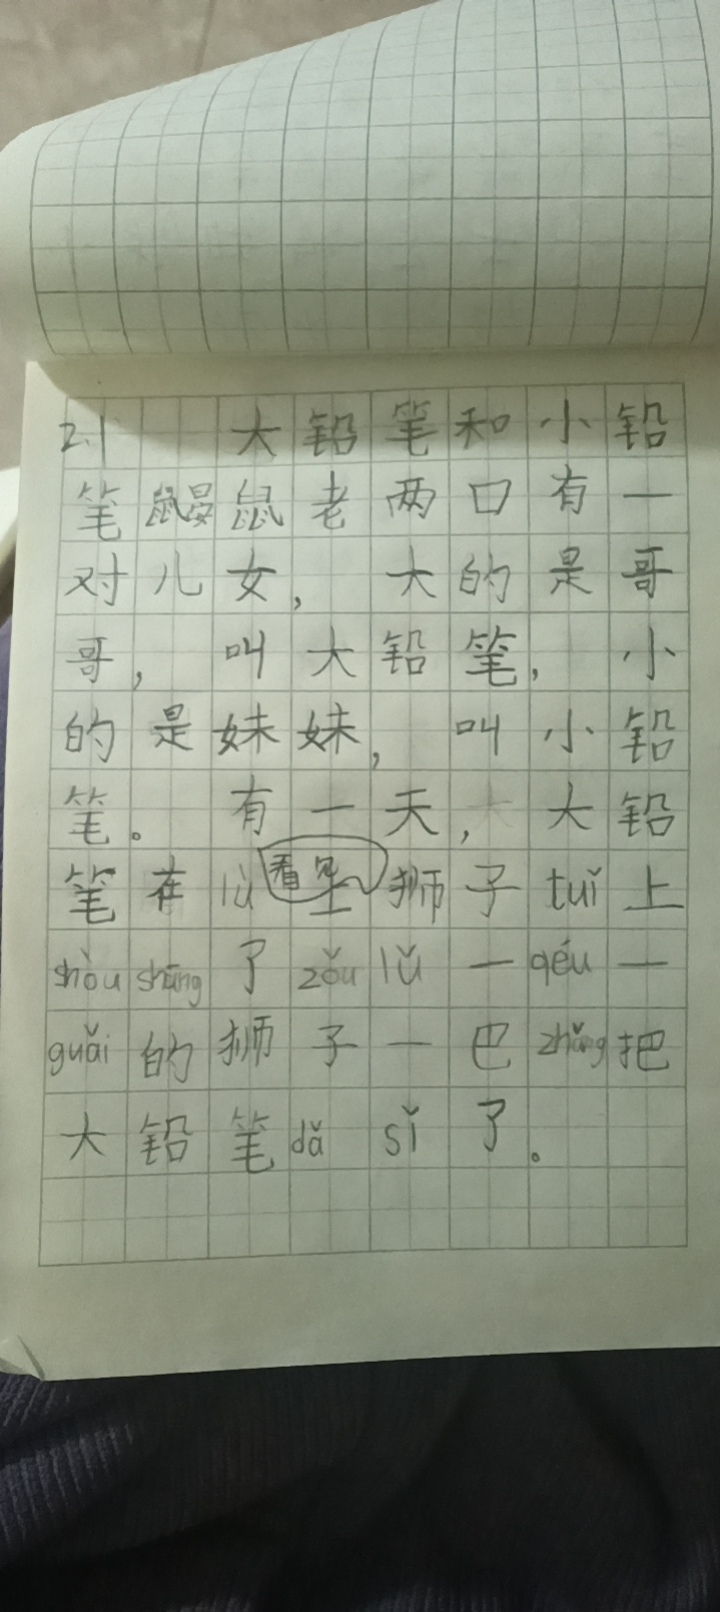 2.1 大铅笔和小铅
笔鼹鼠老两口有一
对儿女，大的是哥
哥，叫大铅笔，小
的是妹妹，叫小铅
笔。有一天，大铅
笔在lù上看见狮子tuǐ上
shòu shāng了zǒu lǔ一qéu一
guǎi的狮子一巴zhǎng把
大铅笔dǎ sǐ了。